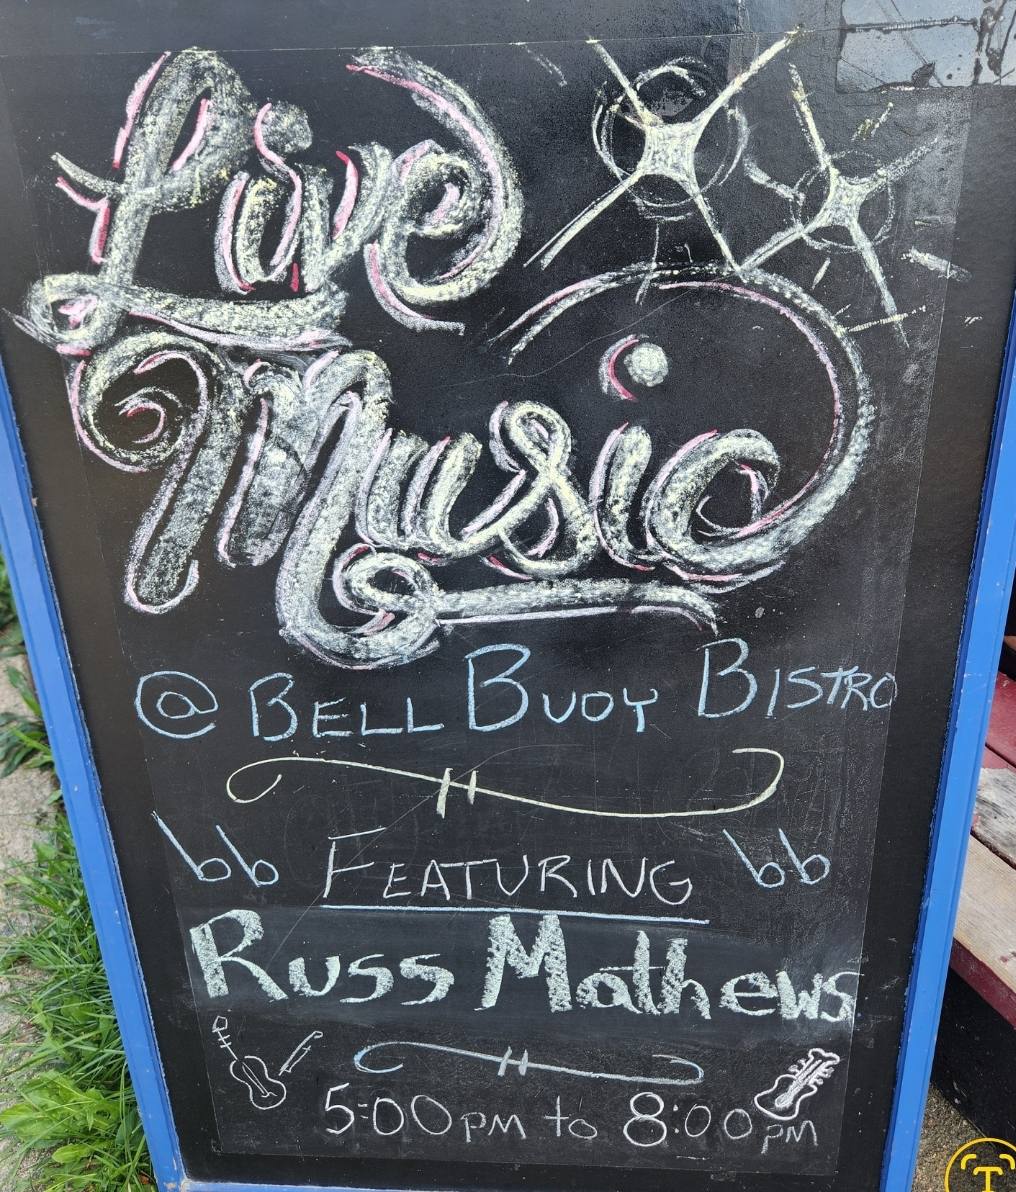 Live
Music
@ BELL BUOY BISTRO
bb FEATURING bb
Russ Mathews
5:00 PM to 8:00 PM
T